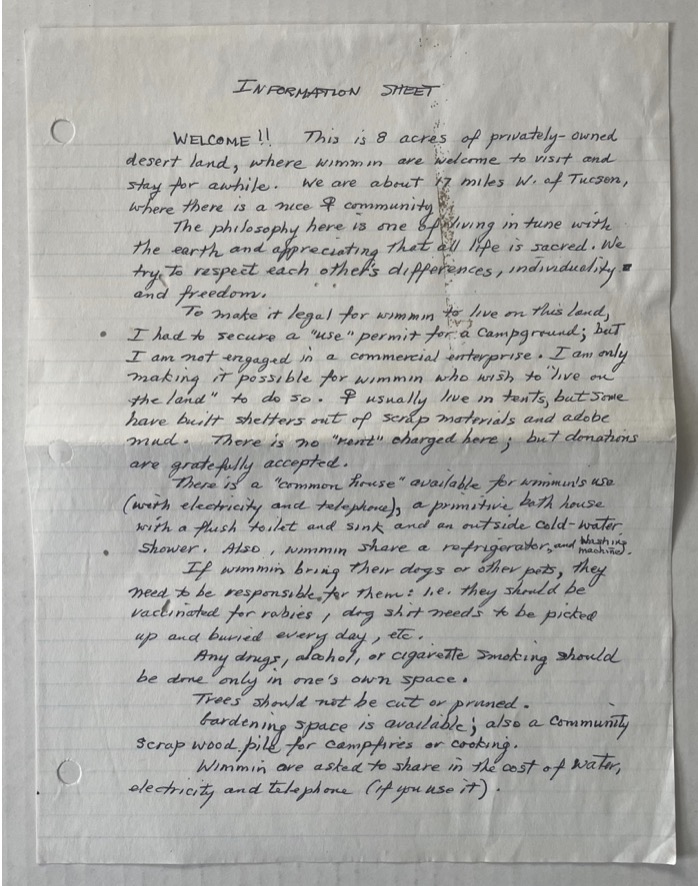 INFORMATION SHEET
WELCOME!! This is 8 acres of privately-owned
desert land, where wimmin are welcome to visit and
stay for awhile. We are about 17 miles W. of Tucson,
where there is a nice ♀ community
The philosophy here is one of living in tune with
the earth and appreciating that all life is sacred. We
try to respect each other's differences, individuality
and freedom.
To make it legal for wimmin to live on this land,
I had to secure a "use" permit for a campground; but
I am not engaged in a commercial enterprise. I am only
making it possible for wimmin who wish to "live on
the land" to do so. ♀ usually live in tents, but some
have built shelters out of scrap materials and adobe
mud. There is no "rent" charged here; but donations
are gratefully accepted.
There is a "common house" available for wimmin's use
(with electricity and telephone), a primitive bath house
with a flush toilet and sink and an outside cold-water
shower. Also, wimmin share a refrigerator, and washing machine).
If wimmin bring their dogs or other pets, they
need to be responsible for them: i.e. they should be
vaccinated for rabies, dog shit needs to be picked
up and buried every day, etc.
Any drugs, alcohol, or cigarette smoking should
be done only in one's own space.
Trees should not be cut or pruned.
Gardening space is available; also a community
scrap wood pile for campfires or cooking.
Wimmin are asked to share in the cost of water,
electricity and telephone (if you use it).